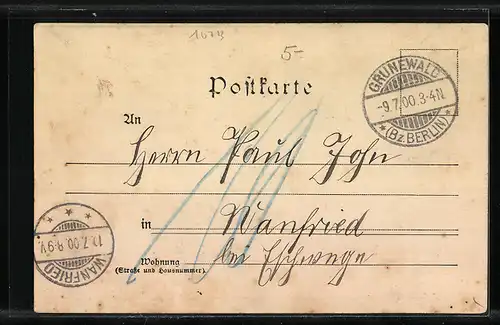 1023
5-
Postkarte
GRUNEWALD
-9.7.00.3-4N.
*(Bz. BERLIN)*
An
Herrn Paul John
in
Wanfried
bei Eschwege
Wohnung
(Straße und Hausnummer).
10
10.7.00.8-9V.
WANFRIED